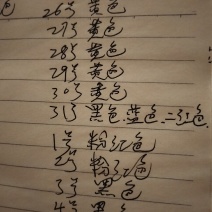 色 26号 黄色
27号 黄色
28号 黄色
29号 黄色
30号 黄色
31号 黑色、蓝色、二红色
1号 粉红色
2号 粉红色
3号 黑色
4号 黑色